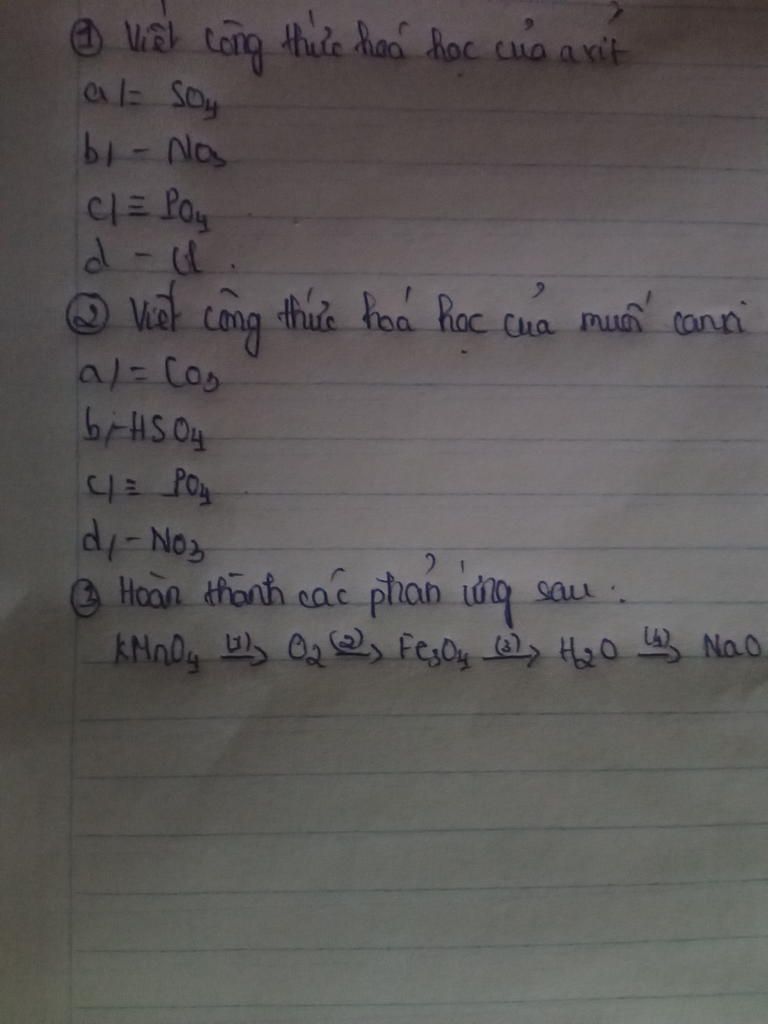 ① Viết công thức hoá học của axit
a/ = SO4
b/ - NO3
c/ ≡ PO4
d - Cl.
② Viết công thức hoá học của muối canxi
a/ = CO3
b/ - HSO4
c/ ≡ PO4
d/ - NO3
③ Hoàn thành các phản ứng sau:
KMnO4 (1)→ O2 (2)→ Fe3O4 (3)→ H2O (4)→ NaO